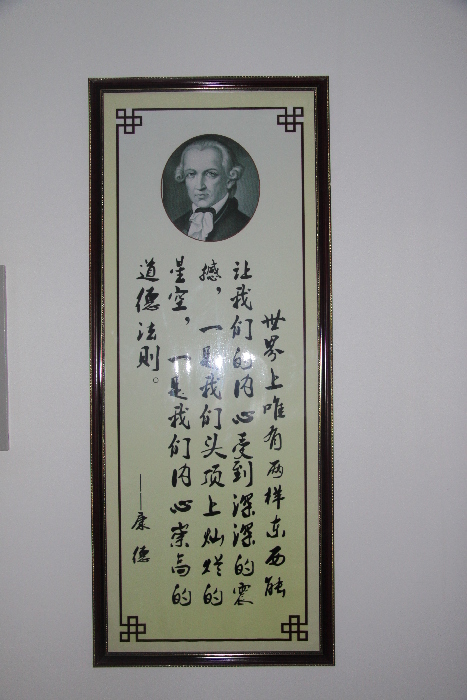 世界上唯有两样东西能
让我们的内心受到深深的震
撼，一是我们头顶上灿烂的
星空，一是我们内心崇高的
道德法则。
——康德